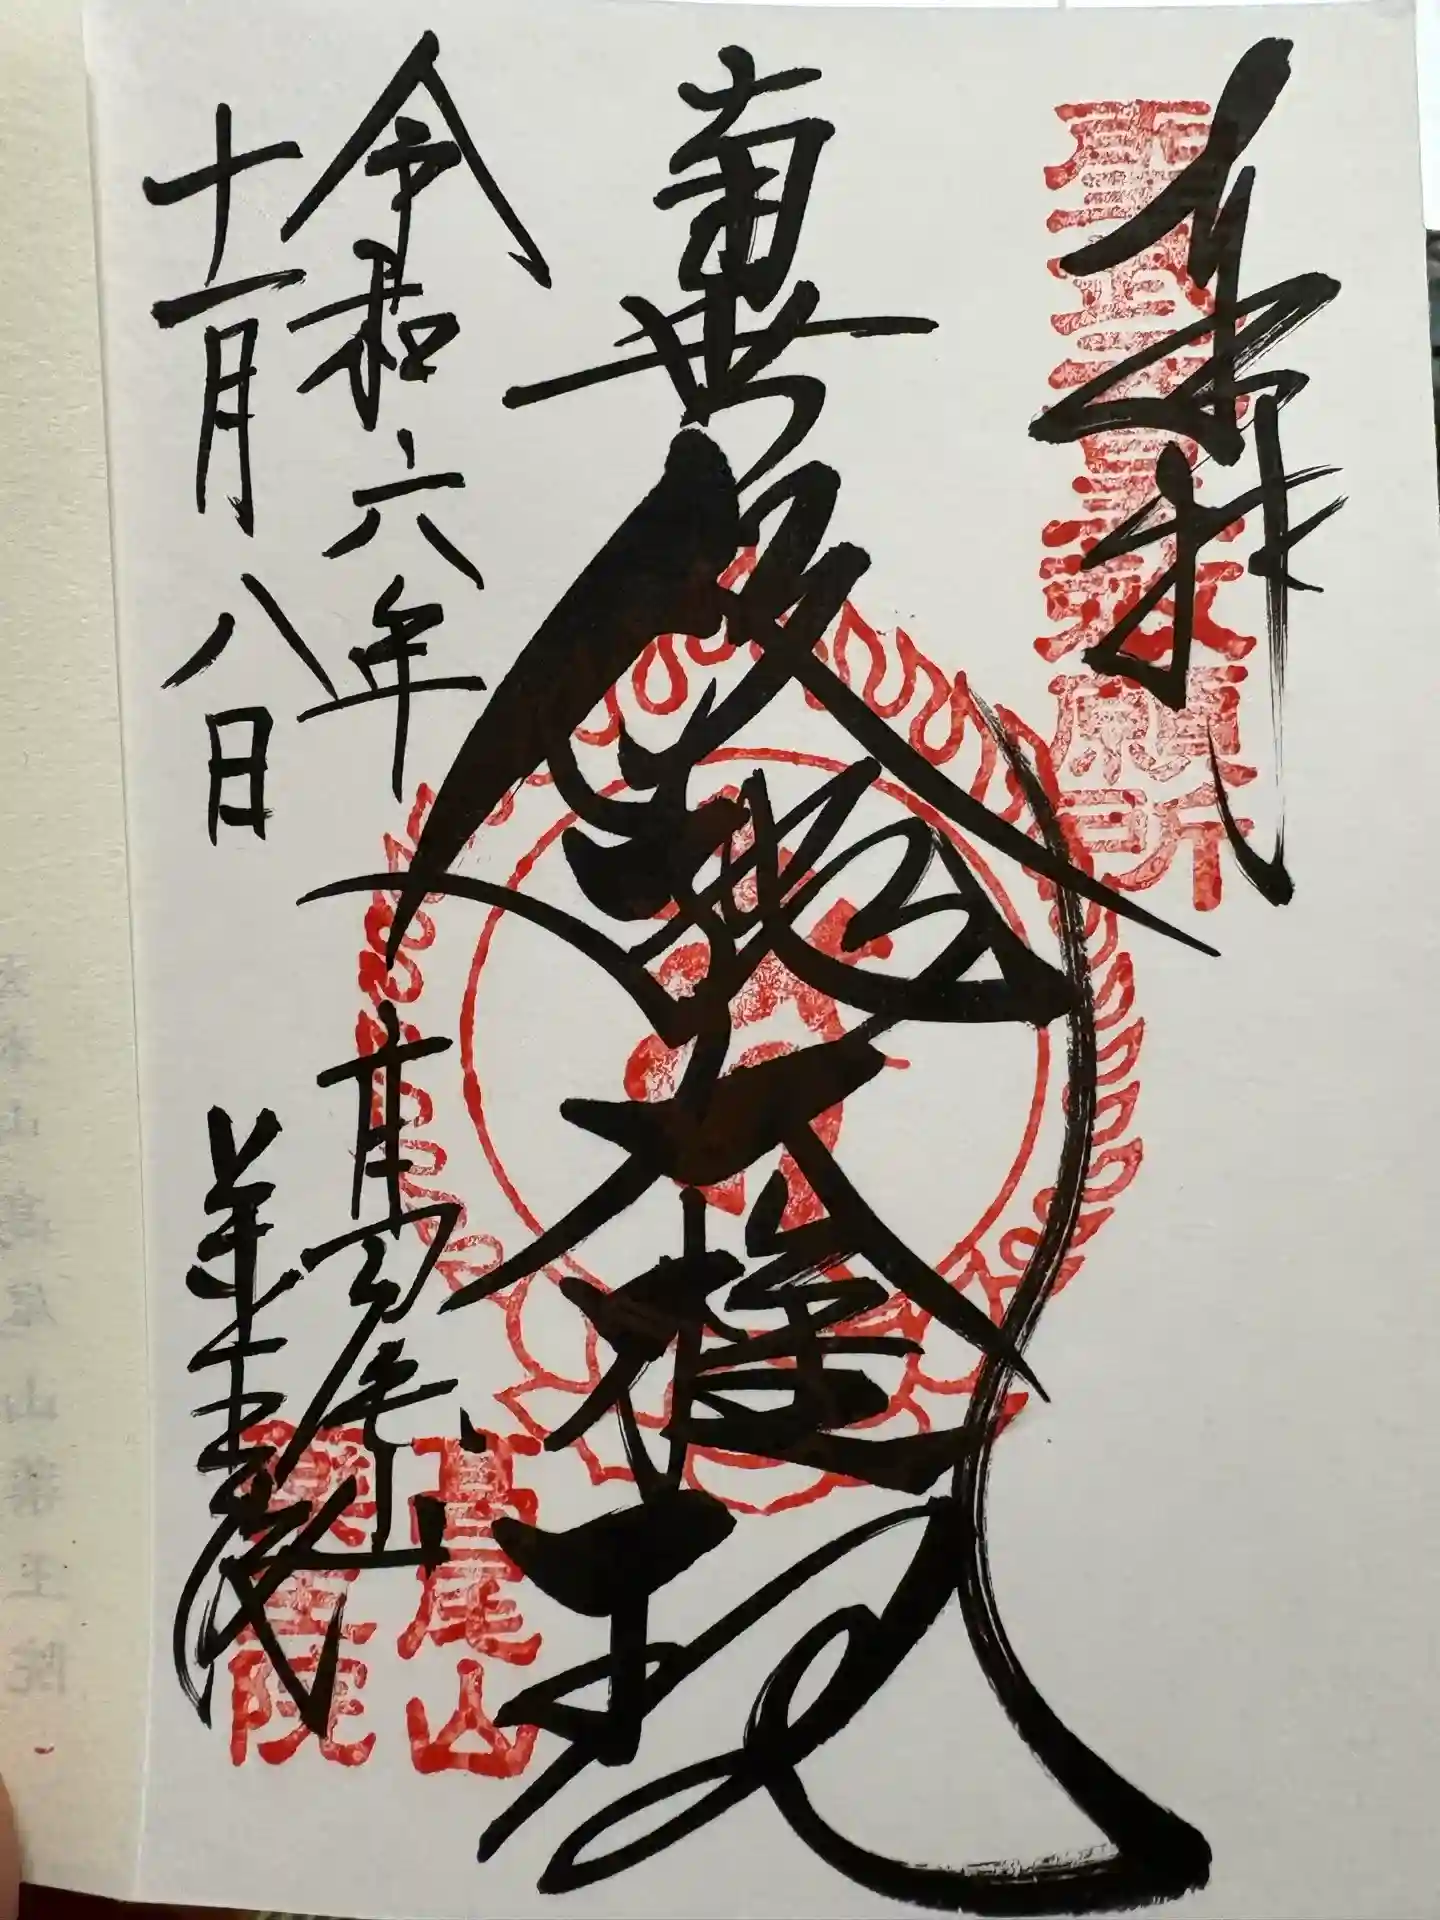 奉拝
聖武皇帝勅願所
南無飯縄大権現
令和六年
十一月八日
高尾山
薬王院
高尾山
薬王院